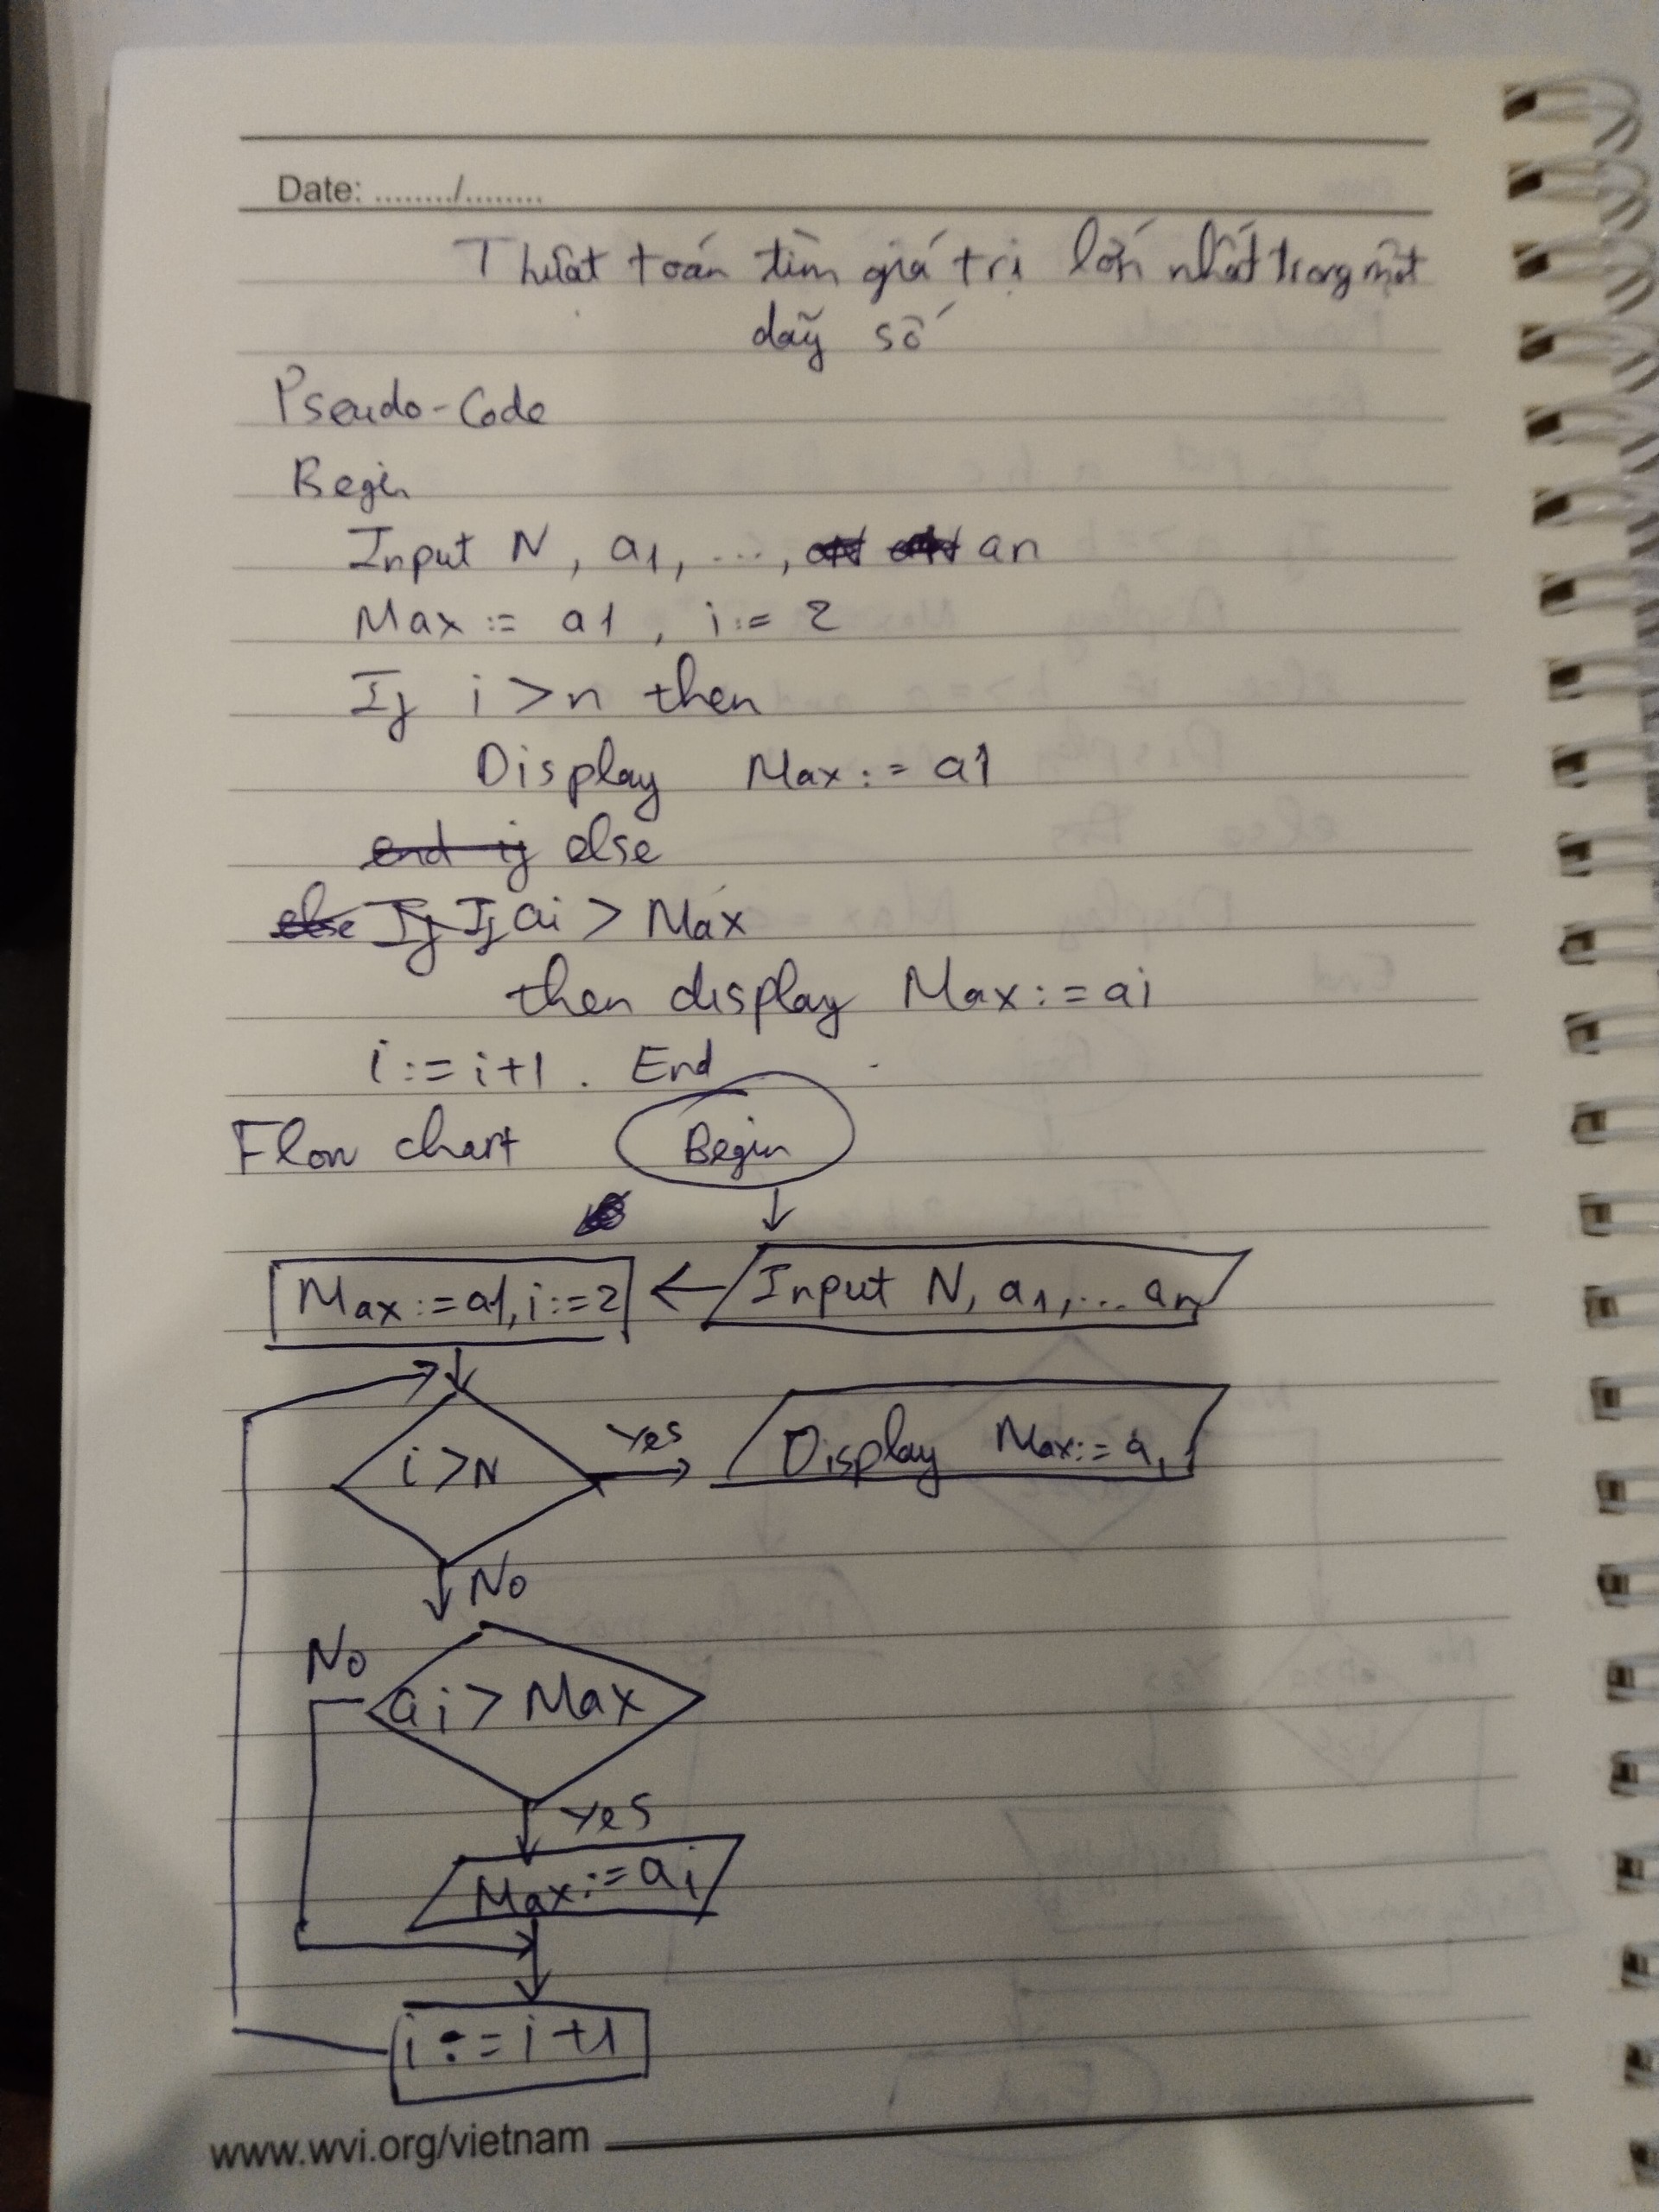 Date: ......../........
Thuật toán tìm giá trị lớn nhất trong một
dãy số
Pseudo-Code
Begin
Input N, a1, ..., an
Max := a1, i := 2
If i > n then
Display Max := a1
end if else
else If If ai > Max
then display Max := ai
i := i+1 . End
Flow chart Begin
Max := a1, i := 2 Input N, a1, ... an
i > N Yes Display Max := a1
No
No
ai > Max
Yes
Max := ai
i := i + 1
www.wvi.org/vietnam